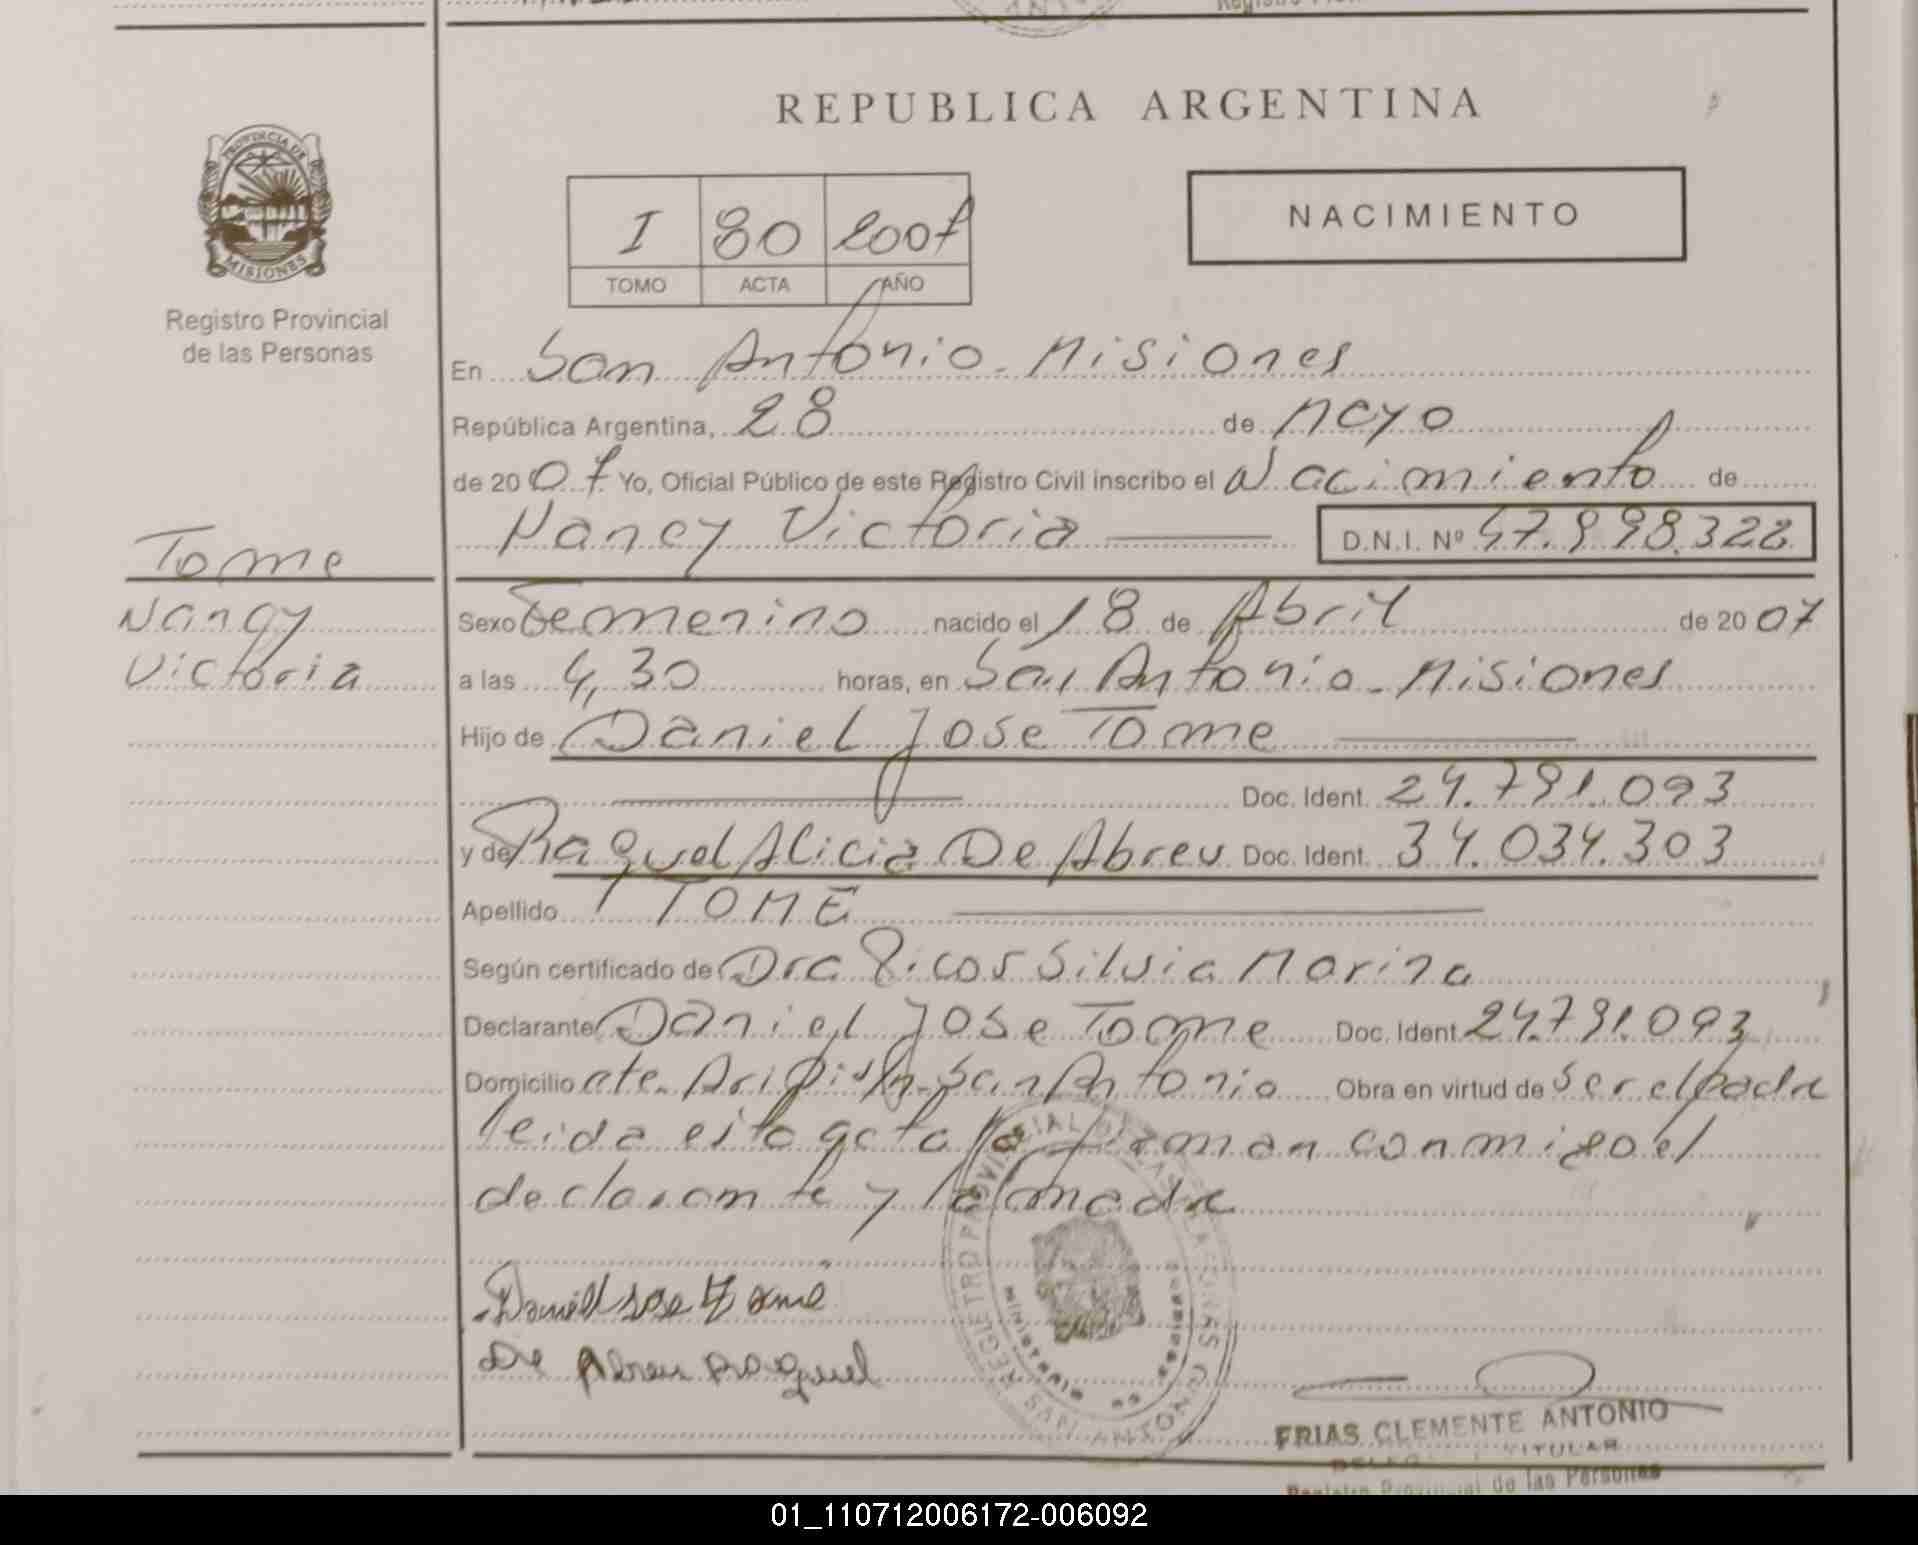 REPUBLICA ARGENTINA
PROVINCIA DE
MISIONES
Registro Provincial
de las Personas
I 80 2007
TOMO ACTA AÑO
NACIMIENTO
En San Antonio - Misiones
República Argentina, 28 de Mayo
de 2007 Yo, Oficial Público de este Registro Civil inscribo el Nacimiento de
Nancy Victoria D.N.I. Nº 47.998.328
Tome
Nancy
Victoria
Sexo Femenino nacido el 18 de Abril de 2007
a las 4,30 horas, en San Antonio - Misiones
Hijo de Daniel Jose Tome
Doc. Ident. 24.791.093
y de Raquel Alicia De Abreu Doc. Ident. 34.034.303
Apellido TOME
Según certificado de Dra Ricos Silvia Marina
Declarante Daniel Jose Tome Doc. Ident. 24.791.093
Domicilio San Antonio Obra en virtud de ser el padre
leida esta acta la firman conmigo el
declarante y la madre
Daniel Jose Tome
De Abreu Raquel
SAN ANTONIO
FRIAS CLEMENTE ANTONIO
TITULAR
Registro Provincial de las Personas
01_110712006172-006092